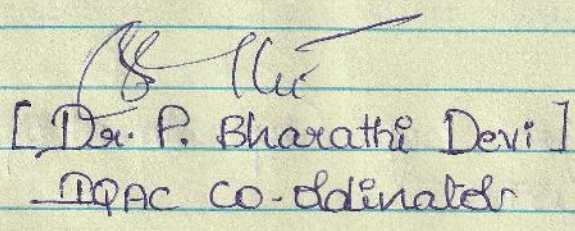 [Dr. P. Bharathi Devi]
IQAC CO-ordinator